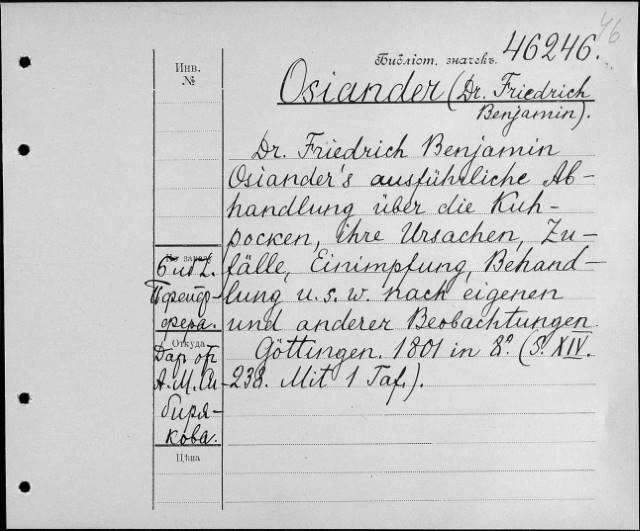 46
Библіот. значекъ. 46246.
Инв.
№
Osiander (Dr. Friedrich
Benjamin).
Dr. Friedrich Benjamin
Osiander's ausführliche Ab-
handlung über die Kuh-
pocken, ihre Ursachen, Zu-
fälle, Einimpfung, Behand-
lung u. s. w. nach eigenen
und anderer Beobachtungen.
Göttingen. 1801 in 8º. (S. XIV.
238. Mit 1 Taf.).
Библ.
фера.
Откуда
Дар от
А. М. Си-
биря-
кова.
Цѣна